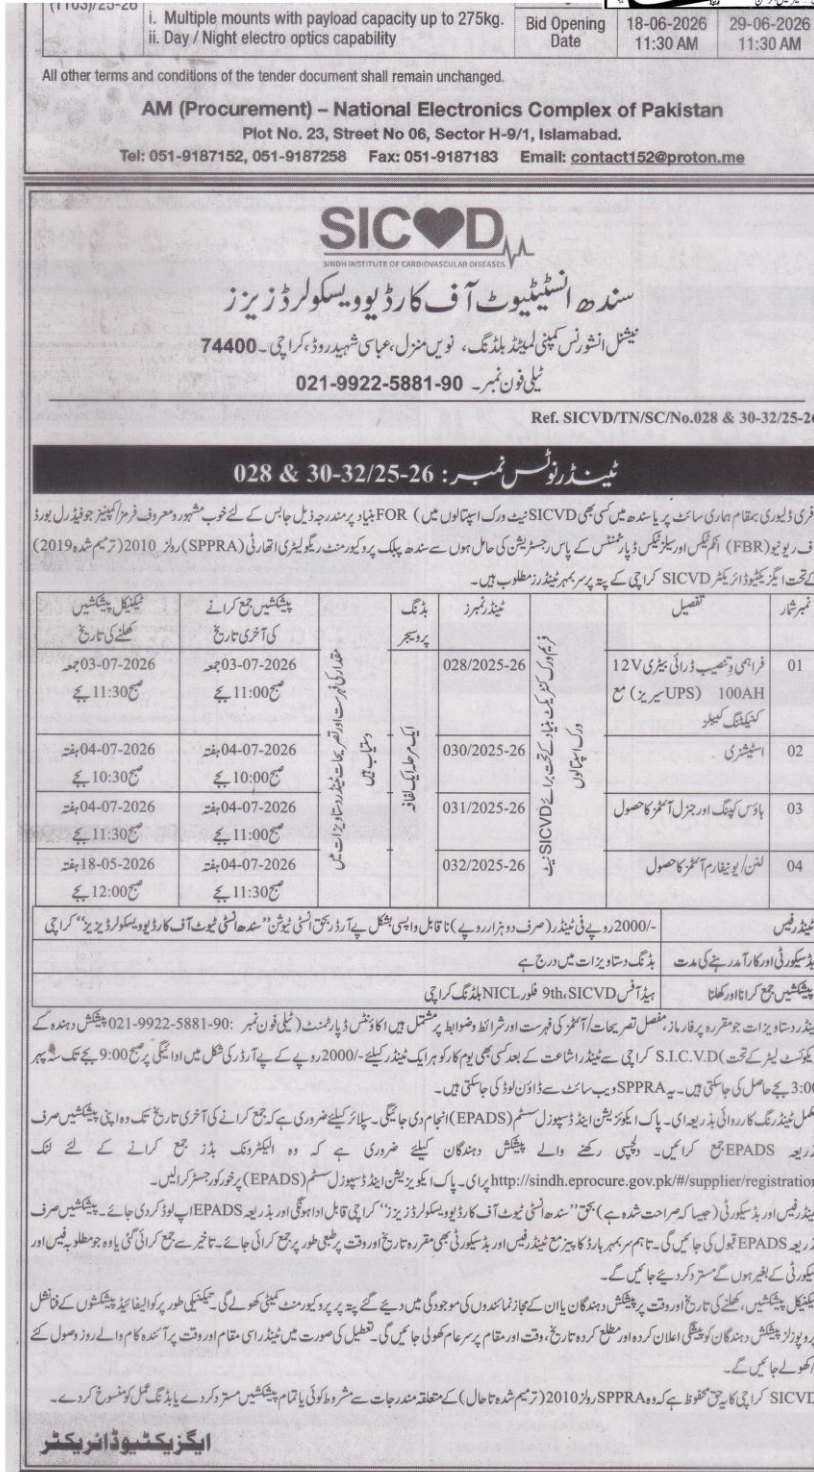 (1103)/25-26
i. Multiple mounts with payload capacity up to 275kg.
ii. Day / Night electro optics capability
Bid Opening Date
18-06-2026 11:30 AM
29-06-2026 11:30 AM
All other terms and conditions of the tender document shall remain unchanged.
AM (Procurement) – National Electronics Complex of Pakistan
Plot No. 23, Street No 06, Sector H-9/1, Islamabad.
Tel: 051-9187152, 051-9187258 Fax: 051-9187183 Email: contact152@proton.me
SICVD
SINDH INSTITUTE OF CARDIOVASCULAR DISEASES
سندھ انسٹیٹیوٹ آف کارڈیوویسکولرڈزیزز
نیشنل انشورنس کمپنی لمیٹڈ بلڈنگ، نویں منزل، عباسی شہید روڈ، کراچی۔ 74400
ٹیلی فون نمبر۔ 021-9922-5881-90
Ref. SICVD/TN/SC/No.028 & 30-32/25-26
ٹینڈر نوٹس نمبر: 028 & 30-32/25-26
فری ڈلیوری بمقام ہماری سائٹ پر یا سندھ میں کسی بھی SICVD نیٹ ورک اسپتالوں میں) FOR بنیاد پر مندرجہ ذیل جابس کے لئے خوب مشہور و معروف فرمز/کمپنیز جو فیڈرل بورڈ
ف ریونیو (FBR) انکم ٹیکس اور سیلز ٹیکس ڈپارٹمنٹس کے پاس رجسٹریشن کی حامل ہوں سے سندھ پبلک پروکیورمنٹ ریگولیٹری اتھارٹی (SPPRA) رولز 2010 (ترمیم شدہ 2019)
کے تحت ایگزیکٹیو ڈائریکٹر SICVD کراچی کے پتہ پر سربمہر ٹینڈرز مطلوب ہیں۔
نمبر شمار تفصیل ٹینڈر نمبرز بڈنگ پروسیجر پیشکشیں جمع کرانے کی آخری تاریخ ٹیکنیکل پیشکشیں کھلنے کی تاریخ
فریم ورک کنٹریکٹ بنیاد کے تحت برائے SICVD نیٹ ورک اسپتالوں
ایک مرحلہ ایک لفافہ
مقدار کی فہرست اور تصریحات ٹینڈر دستاویزات میں دستیاب ہیں
01 فراہمی و تنصیب ڈرائی بیٹری 12V 100AH (UPS سیریز) مع کنیکٹنگ کیبلز 028/2025-26 03-07-2026 جمعہ صبح 11:00 بجے 03-07-2026 جمعہ صبح 11:30 بجے
02 اسٹیشنری 030/2025-26 04-07-2026 ہفتہ صبح 10:00 بجے 04-07-2026 ہفتہ صبح 10:30 بجے
03 ہاؤس کیپنگ اور جنرل آئٹمز کا حصول 031/2025-26 04-07-2026 ہفتہ صبح 11:00 بجے 04-07-2026 ہفتہ صبح 11:30 بجے
04 لنن/یونیفارم آئٹمز کا حصول 032/2025-26 04-07-2026 ہفتہ صبح 11:30 بجے 18-05-2026 ہفتہ صبح 12:00 بجے
ٹینڈر فیس 2000/- روپے فی ٹینڈر (صرف دو ہزار روپے) نا قابل واپسی بشکل پے آرڈر بحق انسٹی ٹیوشن "سندھ انسٹی ٹیوٹ آف کارڈیوویسکولرڈیزیز" کراچی
بڈ سیکورٹی اور کارآمد رہنے کی مدت بڈنگ دستاویزات میں درج ہے
پیشکشیں جمع کرانا اور کھلنا ہیڈ آفس SICVD، 9th فلور NICL بلڈنگ کراچی
ینڈر دستاویزات جو مقررہ پرفارماز، مفصل تصریحات/آئٹمز کی فہرست اور شرائط و ضوابط پر مشتمل ہیں اکاؤنٹس ڈپارٹمنٹ (ٹیلی فون نمبر: 021-9922-5881-90 پیشکش دہندہ کے
یکوئسٹ لیٹر کے تحت) S.I.C.V.D کراچی سے ٹینڈر اشاعت کے بعد کسی بھی یوم کار کو ہر ایک ٹینڈر کیلئے 2000/- روپے کے پے آرڈر کی شکل میں ادائیگی پر صبح 9:00 بجے تک سہ پہر
3:00 بجے حاصل کی جاسکتی ہیں۔ یہ SPPRA ویب سائٹ سے ڈاؤن لوڈ کی جاسکتی ہیں۔
مکمل ٹینڈرنگ کارروائی بذریعہ ای۔ پاک ایکوئزیشن اینڈ ڈسپوزل سسٹم (EPADS) انجام دی جائیگی۔ سپلائر کیلئے ضروری ہے کہ جمع کرانے کی آخری تاریخ تک وہ اپنی پیشکشیں صرف
ذریعہ EPADS جمع کرائیں۔ دلچسپی رکھنے والے پیشکش دہندگان کیلئے ضروری ہے کہ وہ الیکٹرونک بڈز جمع کرانے کے لئے لنک
http://sindh.eprocure.gov.pk/#/supplier/registration پر ای۔ پاک ایکویزیشن اینڈ ڈسپوزل سسٹم (EPADS) پر خود کو رجسٹر کرالیں۔
ینڈر فیس اور بڈ سیکورٹی (جیسا کہ صراحت شدہ ہے) بحق "سندھ انسٹی ٹیوٹ آف کارڈیوویسکولرڈزیزز" کراچی قابل ادا ہوگی اور بذریعہ EPADS اپ لوڈ کردی جائے۔ پیشکشیں صرف
ذریعہ EPADS قبول کی جائیں گی۔ تاہم سربمہر ہارڈ کاپیز مع ٹینڈر فیس اور بڈ سیکورٹی بھی مقررہ تاریخ اور وقت پر طبعی طور پر جمع کرائی جائے۔ تاخیر سے جمع کرائی گئی یا وہ جو مطلوبہ فیس اور
سیکورٹی کے بغیر ہوں گے مسترد کردیئے جائیں گے۔
ٹیکنیکل پیشکشیں، کھلنے کی تاریخ اور وقت پر پیشکش دہندگان یا ان کے مجاز نمائندوں کی موجودگی میں دیئے گئے پتہ پر پروکیورمنٹ کمیٹی کھولے گی۔ تیکنیکی طور پر کوالیفائیڈ پیشکشوں کے فنانشل
پروپوزلز پیشکش دہندگان کو پیشگی اعلان کردہ اور مطلع کردہ تاریخ، وقت اور مقام پر سرعام کھولی جائیں گی۔ تعطیل کی صورت میں ٹینڈر اسی مقام اور وقت پر آئندہ کام والے روز وصول کئے
/کھولے جائیں گے۔
SICVD کراچی کا یہ حق محفوظ ہے کہ وہ SPPRA رولز 2010 (ترمیم شدہ تا حال) کے متعلقہ مندرجات سے مشروط کوئی یا تمام پیشکشیں مسترد کردے یا بڈنگ عمل کو منسوخ کردے۔
ایگزیکٹیو ڈائریکٹر